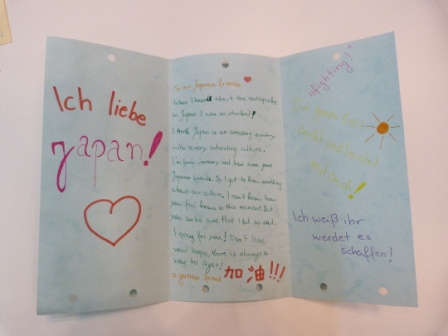 Ich liebe
Japan!
To our Japanese friends
When I heard about the earthquake
in Japan I was so shocked!
I think Japan is an amazing country
with a very interesting culture.
I'm from Germany and have some good
Japanese friends. So I got to know something
about our culture. I don't know how
you feel know in this moment but
you can be sure that I feel so sad.
I pray for you! Don't lose
your hope, there is always a
way to light!
a german friend
加油!!!
"fighting!"
Die ganze
Welt
mit euch!
Ich weiß ihr
werdet es
schaffen!